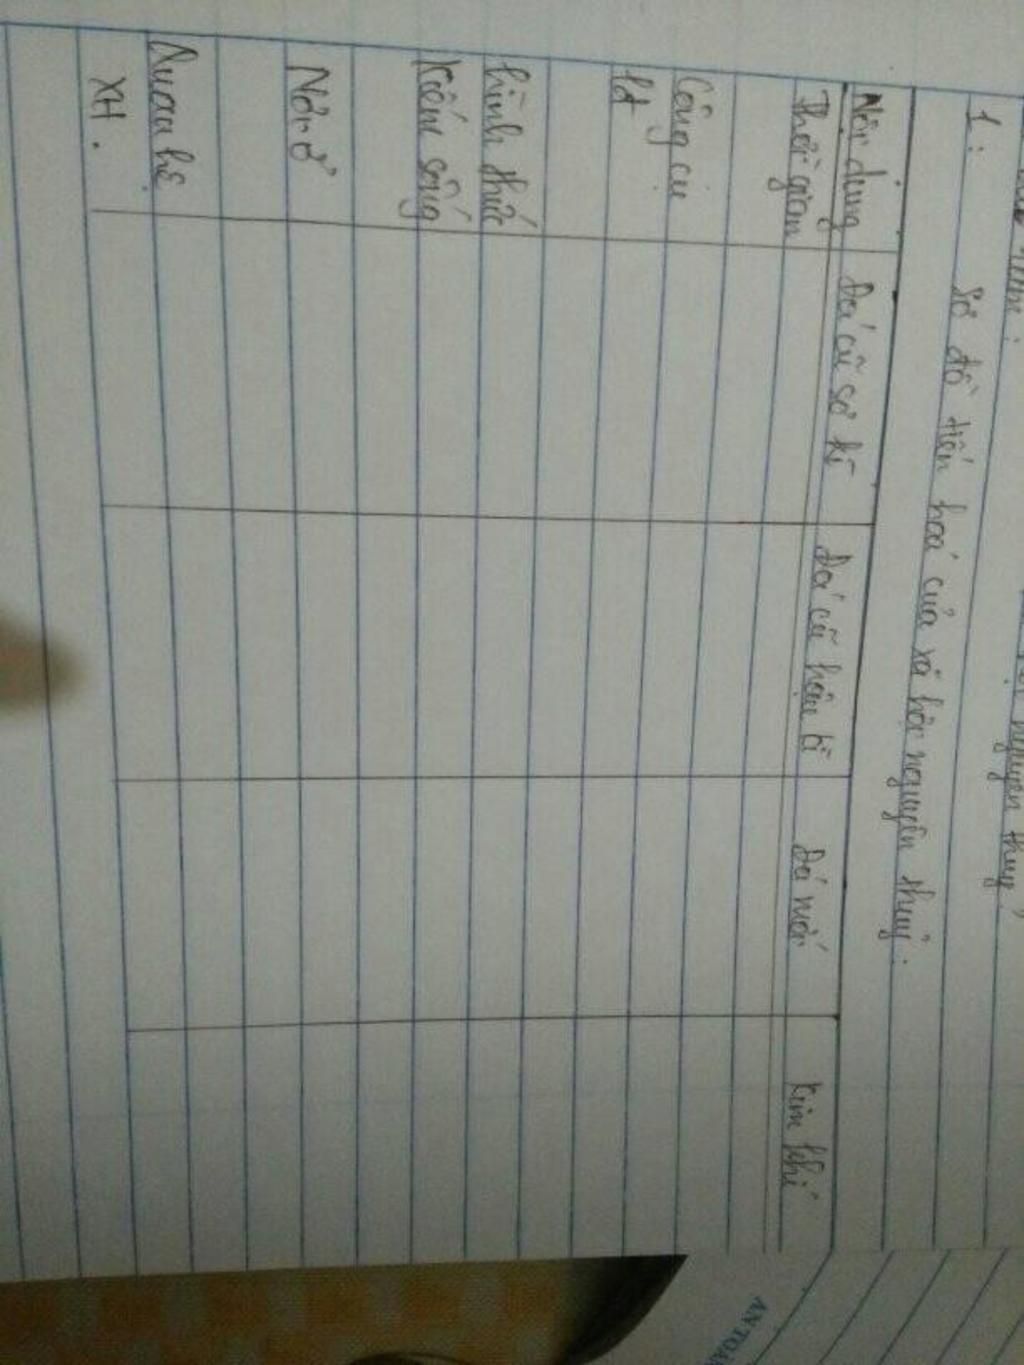 nguyên thuỷ?
1: Sơ đồ tiến hoá của xã hội nguyên thuỷ:
Nội dung Đá cũ sơ kì Đá cũ hậu kì Đá mới Kim khí
Thời gian
Công cụ
lđ
hình thức
kiếm sống
Nơi ở
Quan hệ
XH.
AN TOÀN